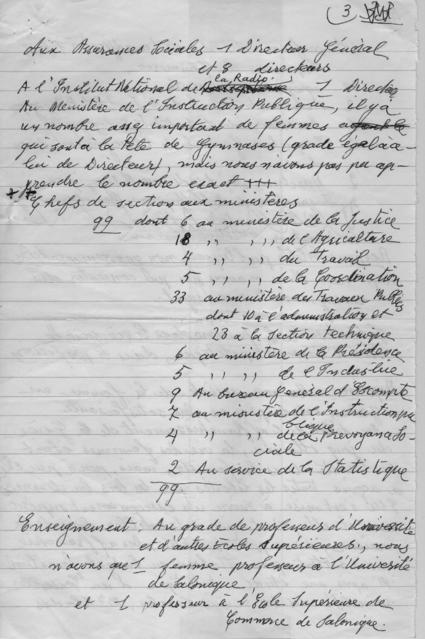 (3)
Aux Assurances Sociales 1 Directeur Général
et 8 directeurs
A l'Institut National de la Radio 1 Directeur
Au Ministère de l'Instruction Publique, il y a
un nombre assez important de femmes
qui sont à la tête de Gymnases (grade égal à ce-
lui de Directeur), mais nous n'avons pas pu ap-
prendre le nombre exact +++
++ Chefs de section aux ministères
99 dont 6 au ministère de la Justice
18 ,, ,, ,, de l'Agriculture
4 ,, ,, du Travail
5 ,, ,, de la Coordination
33 au ministère des Travaux Publics
dont 10 à l'administration et
23 à la section technique
6 au ministère de la Présidence
5 ,, ,, de l'Industrie
9 Au bureau Général d'Escompte
7 au ministère de l'Instruction pu
blique
4 ,, ,, de la Prévoyance So-
ciale
2 Au service de la Statistique
99
Enseignement. Au grade de professeur d'Université
et d'autres Ecoles Supérieures, nous
n'avons que 1 femme professeur à l'Université
de Salonique
et 1 professeur à l'Ecole Supérieure de
Commerce de Salonique.